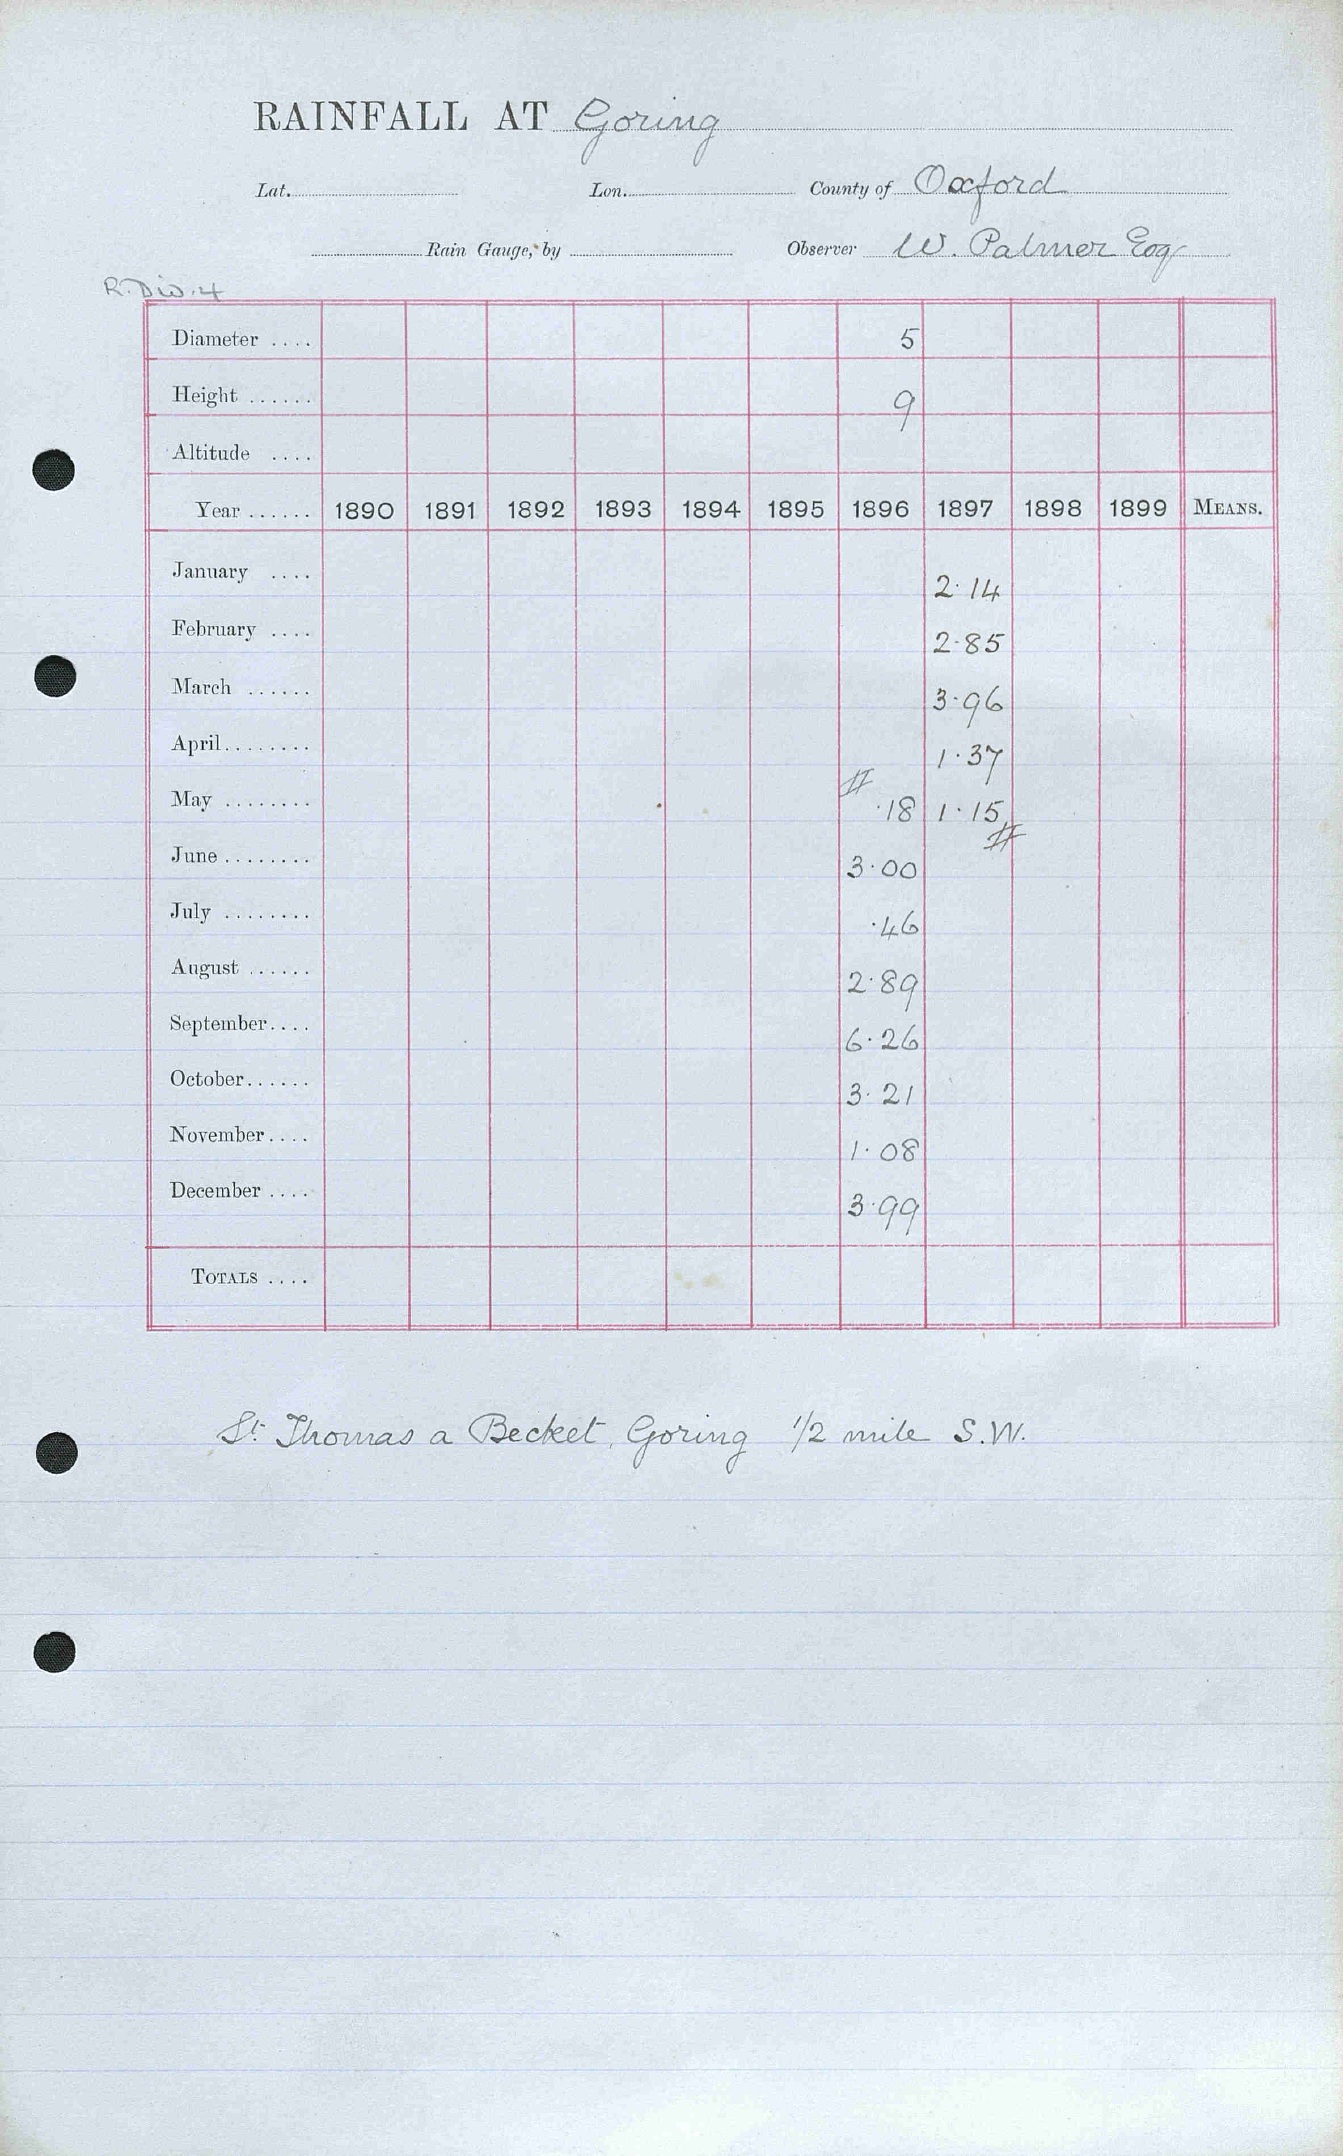 RAINFALL AT Goring
Lat. Lon. County of Oxford
Rain Gauge, by Observer W. Palmer Esq
R. Div. 4
Diameter .... 5
Height ...... 9
Altitude ....
Year ...... 1890 1891 1892 1893 1894 1895 1896 1897 1898 1899 MEANS.
January .... 2.14
February .... 2.85
March ...... 3.96
April........ 1.37
May ........ # .18 1.15 #
June ........ 3.00
July ........ .46
August ...... 2.89
September.... 6.26
October...... 3.21
November.... 1.08
December .... 3.99
TOTALS ....
St. Thomas a Becket, Goring 1/2 mile S.W.